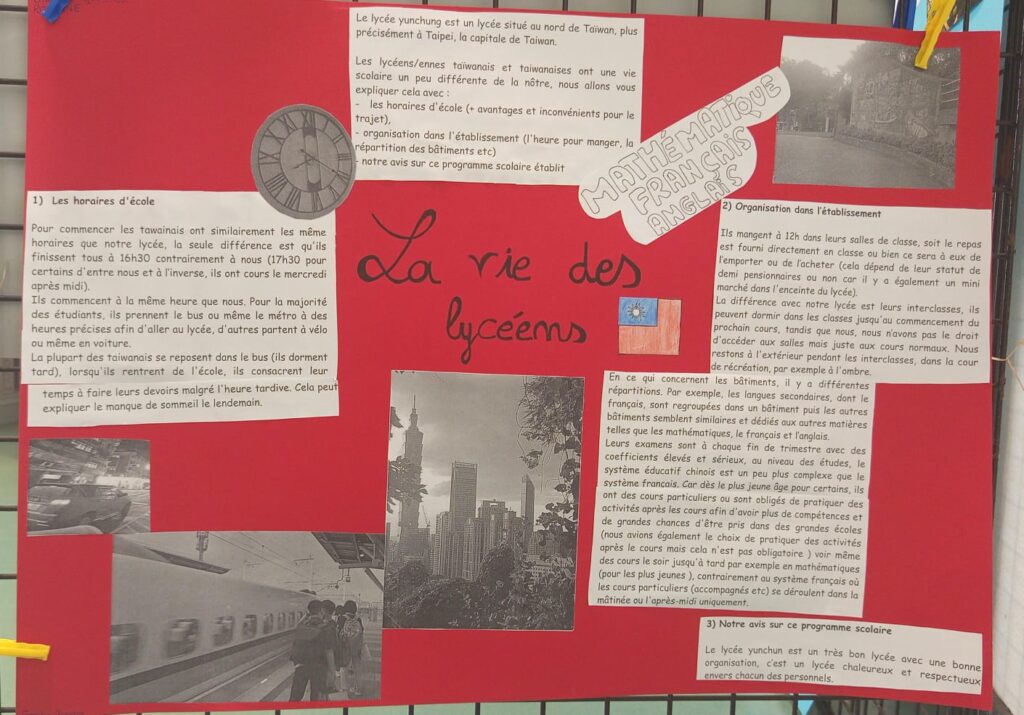 Le lycée yunchung est un lycée situé au nord de Taïwan, plus
précisément à Taipei, la capitale de Taiwan.
Les lycéens/ennes taïwanais et taiwanaises ont une vie
scolaire un peu différente de la nôtre, nous allons vous
expliquer cela avec :
- les horaires d'école (+ avantages et inconvénients pour le
trajet),
- organisation dans l'établissement (l'heure pour manger, la
répartition des bâtiments etc)
- notre avis sur ce programme scolaire établit
MATHÉMATIQUE
FRANÇAIS
ANGLAIS
1) Les horaires d'école
Pour commencer les tawainais ont similairement les même
horaires que notre lycée, la seule différence est qu'ils
finissent tous à 16h30 contrairement à nous (17h30 pour
certains d'entre nous et à l'inverse, ils ont cours le mercredi
après midi).
Ils commencent à la même heure que nous. Pour la majorité
des étudiants, ils prennent le bus ou même le métro à des
heures précises afin d'aller au lycée, d'autres partent à vélo
ou même en voiture.
La plupart des taiwanais se reposent dans le bus (ils dorment
tard), lorsqu'ils rentrent de l'école, ils consacrent leur
temps à faire leurs devoirs malgré l'heure tardive. Cela peut
expliquer le manque de sommeil le lendemain.
La vie des
lycéens
2) Organisation dans l'établissement
Ils mangent à 12h dans leurs salles de classe, soit le repas
est fourni directement en classe ou bien ce sera à eux de
l'emporter ou de l'acheter (cela dépend de leur statut de
demi pensionnaires ou non car il y a également un mini
marché dans l'enceinte du lycée).
La différence avec notre lycée est leurs interclasses, ils
peuvent dormir dans les classes jusqu'au commencement du
prochain cours, tandis que nous, nous n'avons pas le droit
d'accéder aux salles mais juste aux cours normaux. Nous
restons à l'extérieur pendant les interclasses, dans la cour
de récréation, par exemple à l'ombre.
En ce qui concernent les bâtiments, il y a différentes
répartitions. Par exemple, les langues secondaires, dont le
français, sont regroupées dans un bâtiment puis les autres
bâtiments semblent similaires et dédiés aux autres matières
telles que les mathématiques, le français et l'anglais.
Leurs examens sont à chaque fin de trimestre avec des
coefficients élevés et sérieux, au niveau des études, le
système éducatif chinois est un peu plus complexe que le
système français. Car dès le plus jeune âge pour certains, ils
ont des cours particuliers ou sont obligés de pratiquer des
activités après les cours afin d'avoir plus de compétences et
de grandes chances d'être pris dans des grandes écoles
(nous avions également le choix de pratiquer des activités
après le cours mais cela n'est pas obligatoire ) voir même
des cours le soir jusqu'à tard par exemple en mathématiques
(pour les plus jeunes ), contrairement au système français où
les cours particuliers (accompagnés etc) se déroulent dans la
mâtinée ou l'après-midi uniquement.
3) Notre avis sur ce programme scolaire
Le lycée yunchun est un très bon lycée avec une bonne
organisation, c'est un lycée chaleureux et respectueux
envers chacun des personnels.